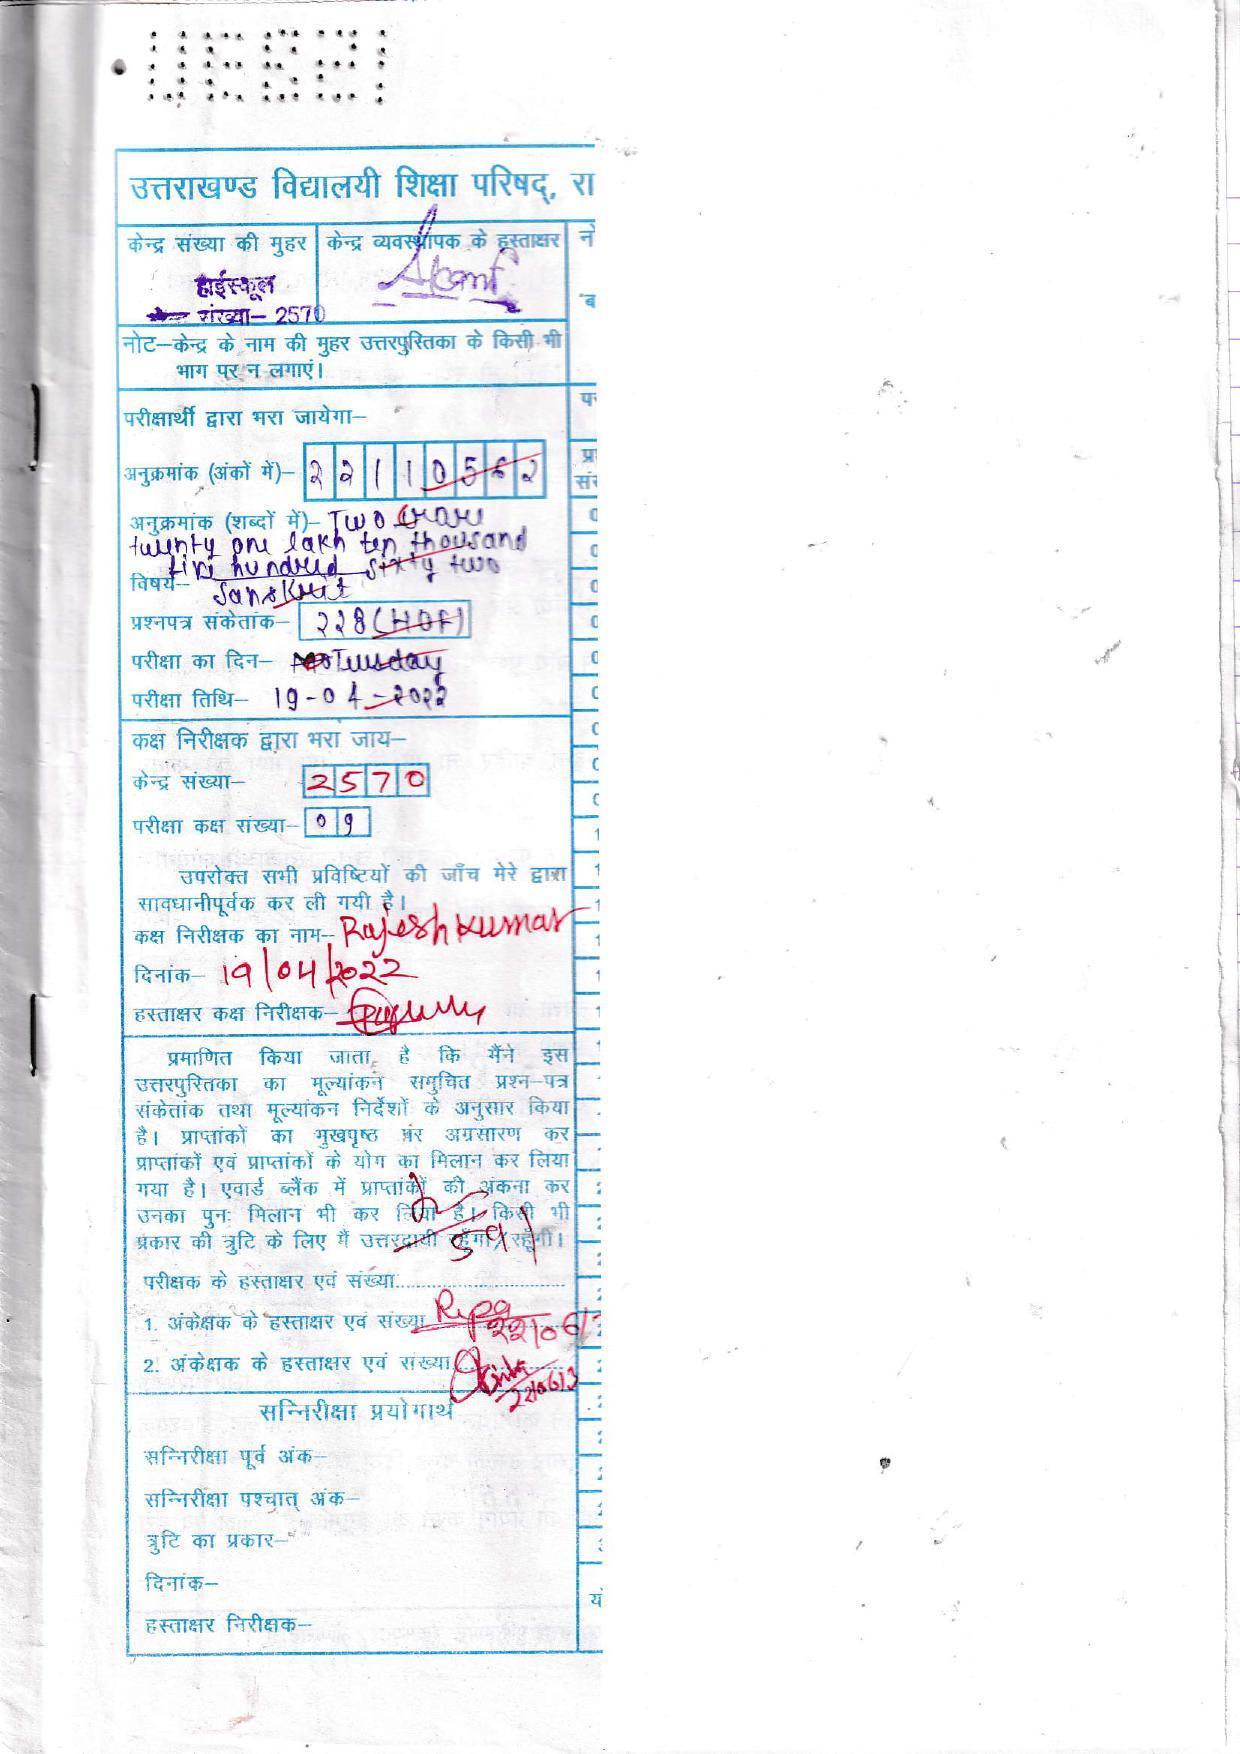 उत्तराखण्ड विद्यालयी शिक्षा परिषद्, रा
केन्द्र संख्या की मुहर
हाईस्कूल
संख्या– 2570
केन्द्र व्यवस्थापक के हस्ताक्षर
नोट–केन्द्र के नाम की मुहर उत्तरपुस्तिका के किसी भी
भाग पर न लगाएं।
परीक्षार्थी द्वारा भरा जायेगा–
अनुक्रमांक (अंकों में)– 22110562
अनुक्रमांक (शब्दों में)– Two Crore
twenty one lakh ten thousand
five hundred sixty two
विषय– Sanskrit
प्रश्नपत्र संकेतांक– 228 (HOF)
परीक्षा का दिन– Tuesday
परीक्षा तिथि– 19-04-2022
कक्ष निरीक्षक द्वारा भरा जाय–
केन्द्र संख्या– 2570
परीक्षा कक्ष संख्या– 09
उपरोक्त सभी प्रविष्टियों की जाँच मेरे द्वारा
सावधानीपूर्वक कर ली गयी है।
कक्ष निरीक्षक का नाम– Rajesh Kumar
दिनांक– 19/04/2022
हस्ताक्षर कक्ष निरीक्षक–
प्रमाणित किया जाता है कि मैंने इस
उत्तरपुस्तिका का मूल्यांकन समुचित प्रश्न–पत्र
संकेतांक तथा मूल्यांकन निर्देशों के अनुसार किया
है। प्राप्तांकों का मुखपृष्ठ पर अग्रसारण कर
प्राप्तांकों एवं प्राप्तांकों के योग का मिलान कर लिया
गया है। एवार्ड ब्लैंक में प्राप्तांकों की अंकना कर
उनका पुनः मिलान भी कर लिया है। किसी भी
प्रकार की त्रुटि के लिए मैं उत्तरदायी रहूँगा/रहूँगी।
परीक्षक के हस्ताक्षर एवं संख्या
1. अंकेक्षक के हस्ताक्षर एवं संख्या
2. अंकेक्षक के हस्ताक्षर एवं संख्या
सन्निरीक्षा प्रयोगार्थ
सन्निरीक्षा पूर्व अंक–
सन्निरीक्षा पश्चात् अंक–
त्रुटि का प्रकार–
दिनांक–
हस्ताक्षर निरीक्षक–